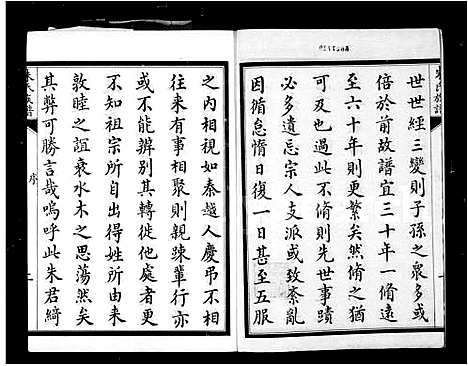 世世經三變則子孫之衆多或
倍於前故譜宜三十年一脩遠
至六十年則更繁矣然脩之猶
易也不脩則先世事蹟
必多遺忌宗人支派或致紊亂
因循怠惰日復一日甚至五服
之內相視如秦越人慶弔不相
往来有事相聚則親踈輩行亦
或不能辨别其轉徙他處者更
不知祖宗所自出得姓所由来
敦睦之誼衰水木之思蕩然矣
其弊可勝言哉嗚呼此朱君綺
朱氏族譜
序
朱氏族譜